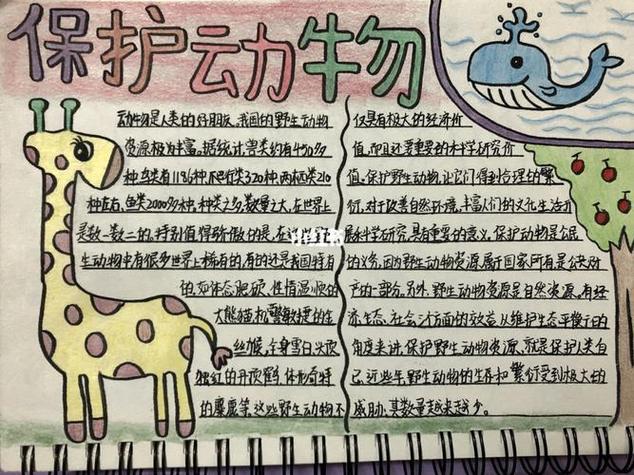 保护动物
动物是人类的好朋友,我国的野生动物
资源极为丰富。据统计,兽类约有450多
种,鸟类有1186种,爬行类320种,两栖类210
种左右,鱼类2000多种,种类之多,数量之大,在世界上
是数一数二的。特别值得骄傲的是,在这些野
生动物中有很多世界上稀有的,有的还是我国特有
的,如体态肥硕、性情温順的
大熊猫,机警敏捷的金
丝猴,全身雪白,头顶
独红的丹顶鹤,体形奇特
的麋鹿等,这些野生动物不
仅具有极大的经济价
值,而且还要重要的科学研究价
值。保护野生动物,让它们得到合理的繁
衍,对于改善自然环境,丰富人们的文化生活,开
展科学研究,具有重要的意义。保护动物是公民
的义务,因为野生动物资源,属于国家所有,是公共财
产的一部分。另外,野生动物资源是自然资源,有经
济、生态、社会三个方面的效益,从维护生态平衡的
角度来讲,保护野生动物资源,就是保护人类自
己,近些年,野生动物的生存和繁衍受到极大的
威胁,其数量越来越少。